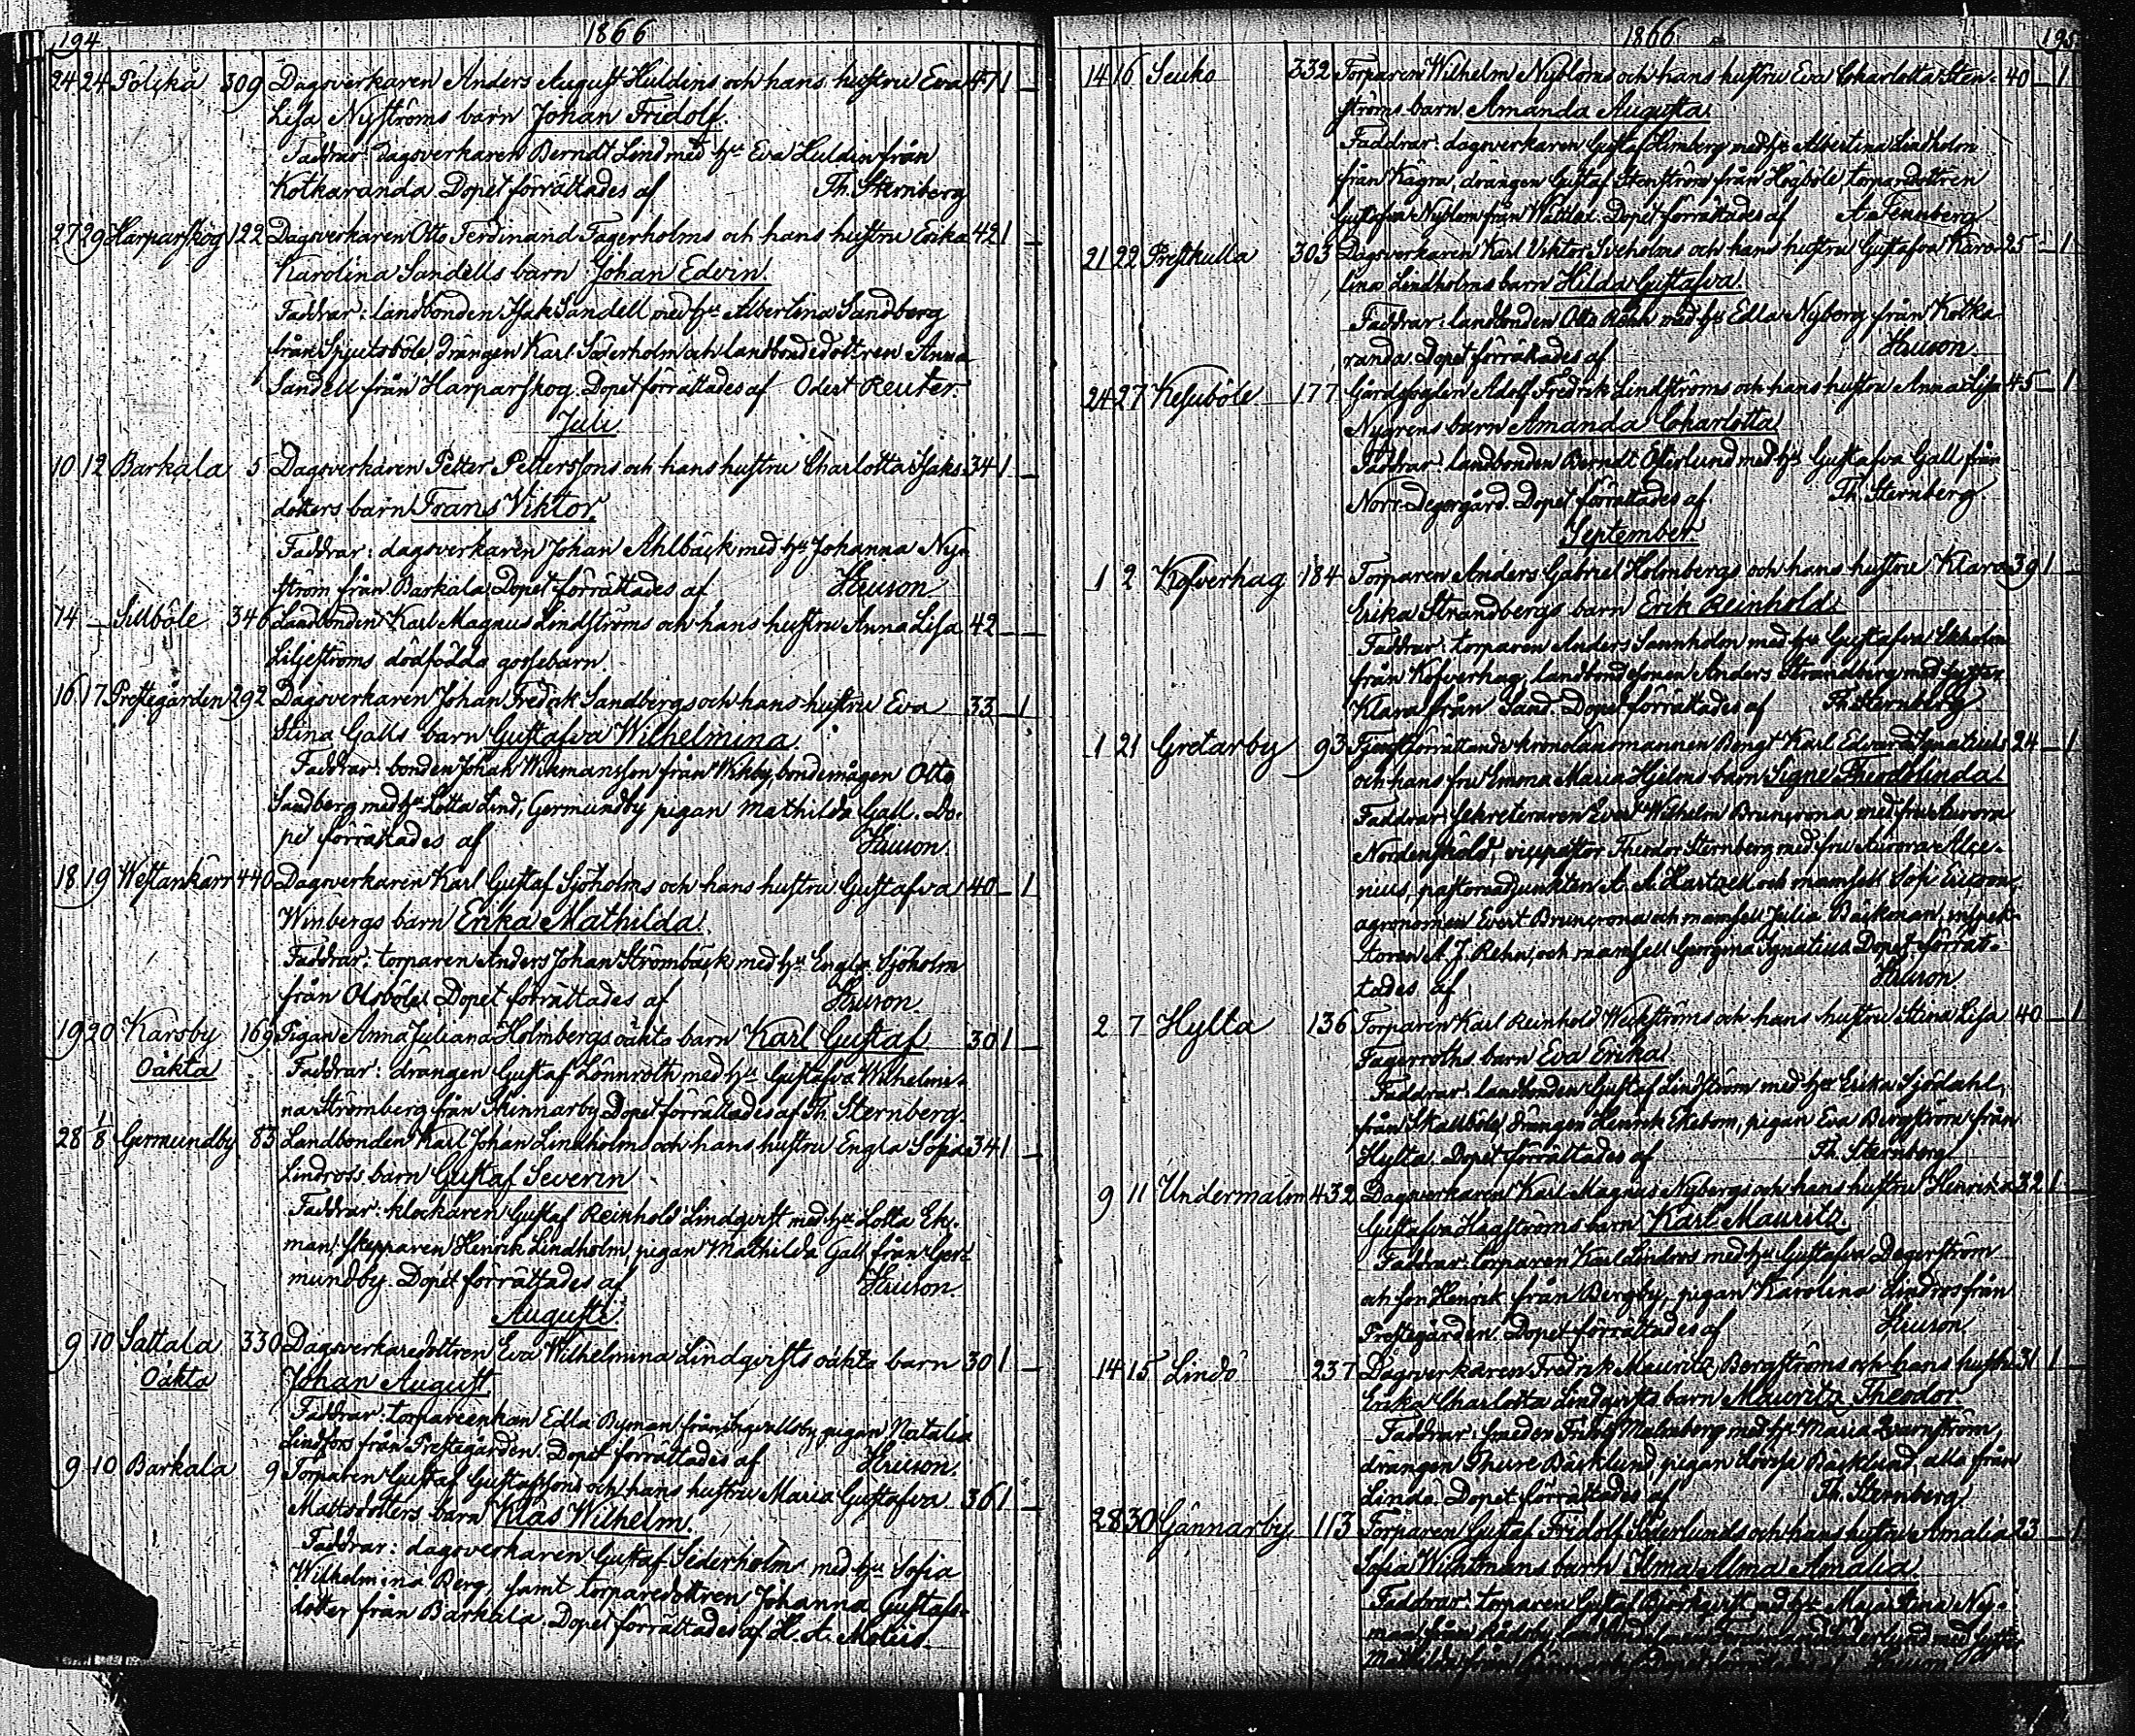 194 1866
24 24 Pölskä 309 Dagsverkaren Anders August Huldins och hans hustru Eva 47 1 –
Lisa Nyströms barn Johan Fridolf.
Faddrar: dagsverkaren Berndt Lind med h:u Eva Huldin från
Kotkaranda. Dopet förrättades af Th. Sternberg
27 29 Harparskog 122 Dagsverkaren Otto Ferdinand Fagerholms och hans hustru Erika 42 1 –
Karolina Sandells barn Johan Edvin.
Faddrar: landbonden Isak Sandell med h:u Albertina Sandberg
från Spjutsböle, drängen Karl Söderholm och landbondedottren Anna
Sandell från Harparskog. Dopet förrättades af Odert Reuter.
Juli.
10 12 Barkala 5 Dagsverkaren Petter Petterssons och hans hustru Charlotta Isaks- 34 1 –
dotters barn Frans Viktor.
Faddrar: dagsverkaren Johan Ahlbäck med h:u Johanna Ny-
ström från Barkala. Dopet förrättades af
14 – Sillböle 346 Landbonden Karl Magnus Lindströms och hans hustru Anna Lisa 42 – –
Liljeströms dödfödda gossebarn.
16 17 Prestegården 292 Dagsverkaren Johan Fredrik Sandbergs och hans hustru Eva 33 – 1
Stina Galls barn Gustafva Wilhelmina.
Faddrar: bonden Johan Wikmansson från Wikby, bondemågen Otto
Sandberg med h:u Lotta Lind, Germundby, pigan Mathilda Gall. Do-
pet förrättades af
18 19 Westankärr 440 Dagsverkaren Karl Gustaf Sjöholms och hans hustru Gustafva 40 – 1
Winbergs barn Erika Mathilda.
Faddrar: torparen Anders Johan Strömbäck med h:u Engla Sjöholm
från Olsböle. Dopet förrättades af
19 20 Karsby 169 Pigan Anna Juliana Holmbergs oäkta barn Karl Gustaf 30 1 –
Oäkta Faddrar: drängen Gustaf Lönnroth med h:u Gustafva Wilhelmi-
na Strömberg från Skinnarby. Dopet förrättades af Th. Sternberg.
28 1/8 Germundby 83 Landbonden Karl Johan Lindholms och hans hustru Engla Sofia 34 1 –
Lindross barn Gustaf Severin
Faddrar: klockaren Gustaf Reinhold Lindqvist med h:u Lotta Ek-
man, skepparen Henrik Lindholm, pigan Mathilda Gall från Ger-
mundby. Dopet förrättades af
Augusti.
9 10 Sattala 330 Dagsverkaredottren Eva Wilhelmina Lindqvists oäkta barn 30 1 –
Oäkta Johan August.
Faddrar: torpareenkan Edla Byman från Ingvallsby, pigan Natalia
Lindfors från Prestegården. Dopet förrättades af
9 10 Barkala 9 Torparen Gustaf Gustafssons och hans hustru Maria Gustafva 36 1 –
Mattsdotters barn Klas Wilhelm.
Faddrar: dagsverkaren Gustaf Sederholm med h:u Sofia
Wilhelmina Berg, samt torparedottren Johanna Gustafs-
dotter från Barkala. Dopet förrättades af H. A. Molis.
1866 195
14 16 Seuko 332 Torparen Wilhelm Nybloms och hans hustru Eva Charlotta Sten- 40 – 1
ströms barn Amanda Augusta.
Faddrar: dagsverkaren Gustaf Himberg med h:u Albertina Lindholm
från Kägra, drängen Gustaf Stenström från Högböle, torparedottren
Gustafva Nyblom från Wättlax. Dopet förrättades af
21 22 Prestkulla 303 Dagsverkaren Karl Viktor och hans hustru Gustafva Karo- 25 – 1
lina Lindholms barn Hilda Gustafva.
Faddrar: landbonden Otto med h:u Edla Nyborg från Kotka-
randa. Dopet förrättades af
24 27 Kesuböle 177 Gårdsfogden Adolf Fredrik Lindströms och hans hustru Anna Lisa 45 – 1
Nygrens barn Amanda Charlotta
Faddrar: landbonden Berndt Österlund med h:u Gustafva Gall från
Norr-Degergård. Dopet förrättades af Th. Sternberg
September.
1 2 Kofverhag 184 Torparen Anders Gabriel Holmbergs och hans hustru Klara 39 1 –
Erika Strandbergs barn Erik Reinhold.
Faddrar: torparen Anders Sannholm med h:u Gustafva
från Kofverhag, landbondesonen Anders Strandberg med syster
Klara från Sand. Dopet förrättades af Th. Sternberg.
1 21 Gretarby 93 Tjenstförrättande kronolänsmannen Bengt Karl Edvard Ignatius 24 – 1
och hans fru Emma Maria Hjelms barn Signe Theodolinda.
Faddrar: sekreteraren Wilhelm Bruncrona med fru Aurora
Nordenskiöld, vicepastor Theodor Sternberg med fru Aurora Alce-
nius, pastorsadjunkten A. A. och mamsell Sofi
agronomen Evert Bruncrona och mamsell Julia Bäckman, inspek-
toren A. J. Rehn och mamsell Georgina Ignatius. Dopet förrät-
tades af
2 7 Hylta 136 Torparen Karl Reinhold Weckströms och hans hustru Stina Lisa 40 – 1
Fagerroths barn Eva Erika.
Faddrar: landbonden Gustaf Lindström med h:u Erika Sjödahl
från Skallböle, drängen Henrik Ekebom, pigan Eva Bergström från
Hylta. Dopet förrättades af Th. Sternberg
9 11 Undermalm 432 Dagsverkaren Karl Magnus Nybergs och hans hustru Henrika 32 1 –
Gustafva Hagströms barn Karl Mauritz.
Faddrar: torparen Karl Lindros med h:u Gustafva Degerström
och son Henrik från Bergby, pigan Karolina Lindros från
Prestegården. Dopet förrättades af
14 15 Lindö 237 Dagsverkaren Fredrik Mauritz Bergströms och hans hustru 31 1 –
Erika Charlotta Lindqvists barn Mauritz Theodor.
Faddrar: smeden Fridolf Malmberg med h:u Maria
drängen Thure Bäcklund, pigan Lovisa Bäcklund alla från
Lindö. Dopet förrättades af Th. Sternberg.
28 30 Gännarby 113 Torparen Gustaf Fridolf Söderlunds och hans hustru Amalia 23 – 1
Sofia Wihlmans barn Ilma Alma Amalia.
Faddrar: torparen Gustaf Björkqvist med h:u Maja Stina Ny-
man från